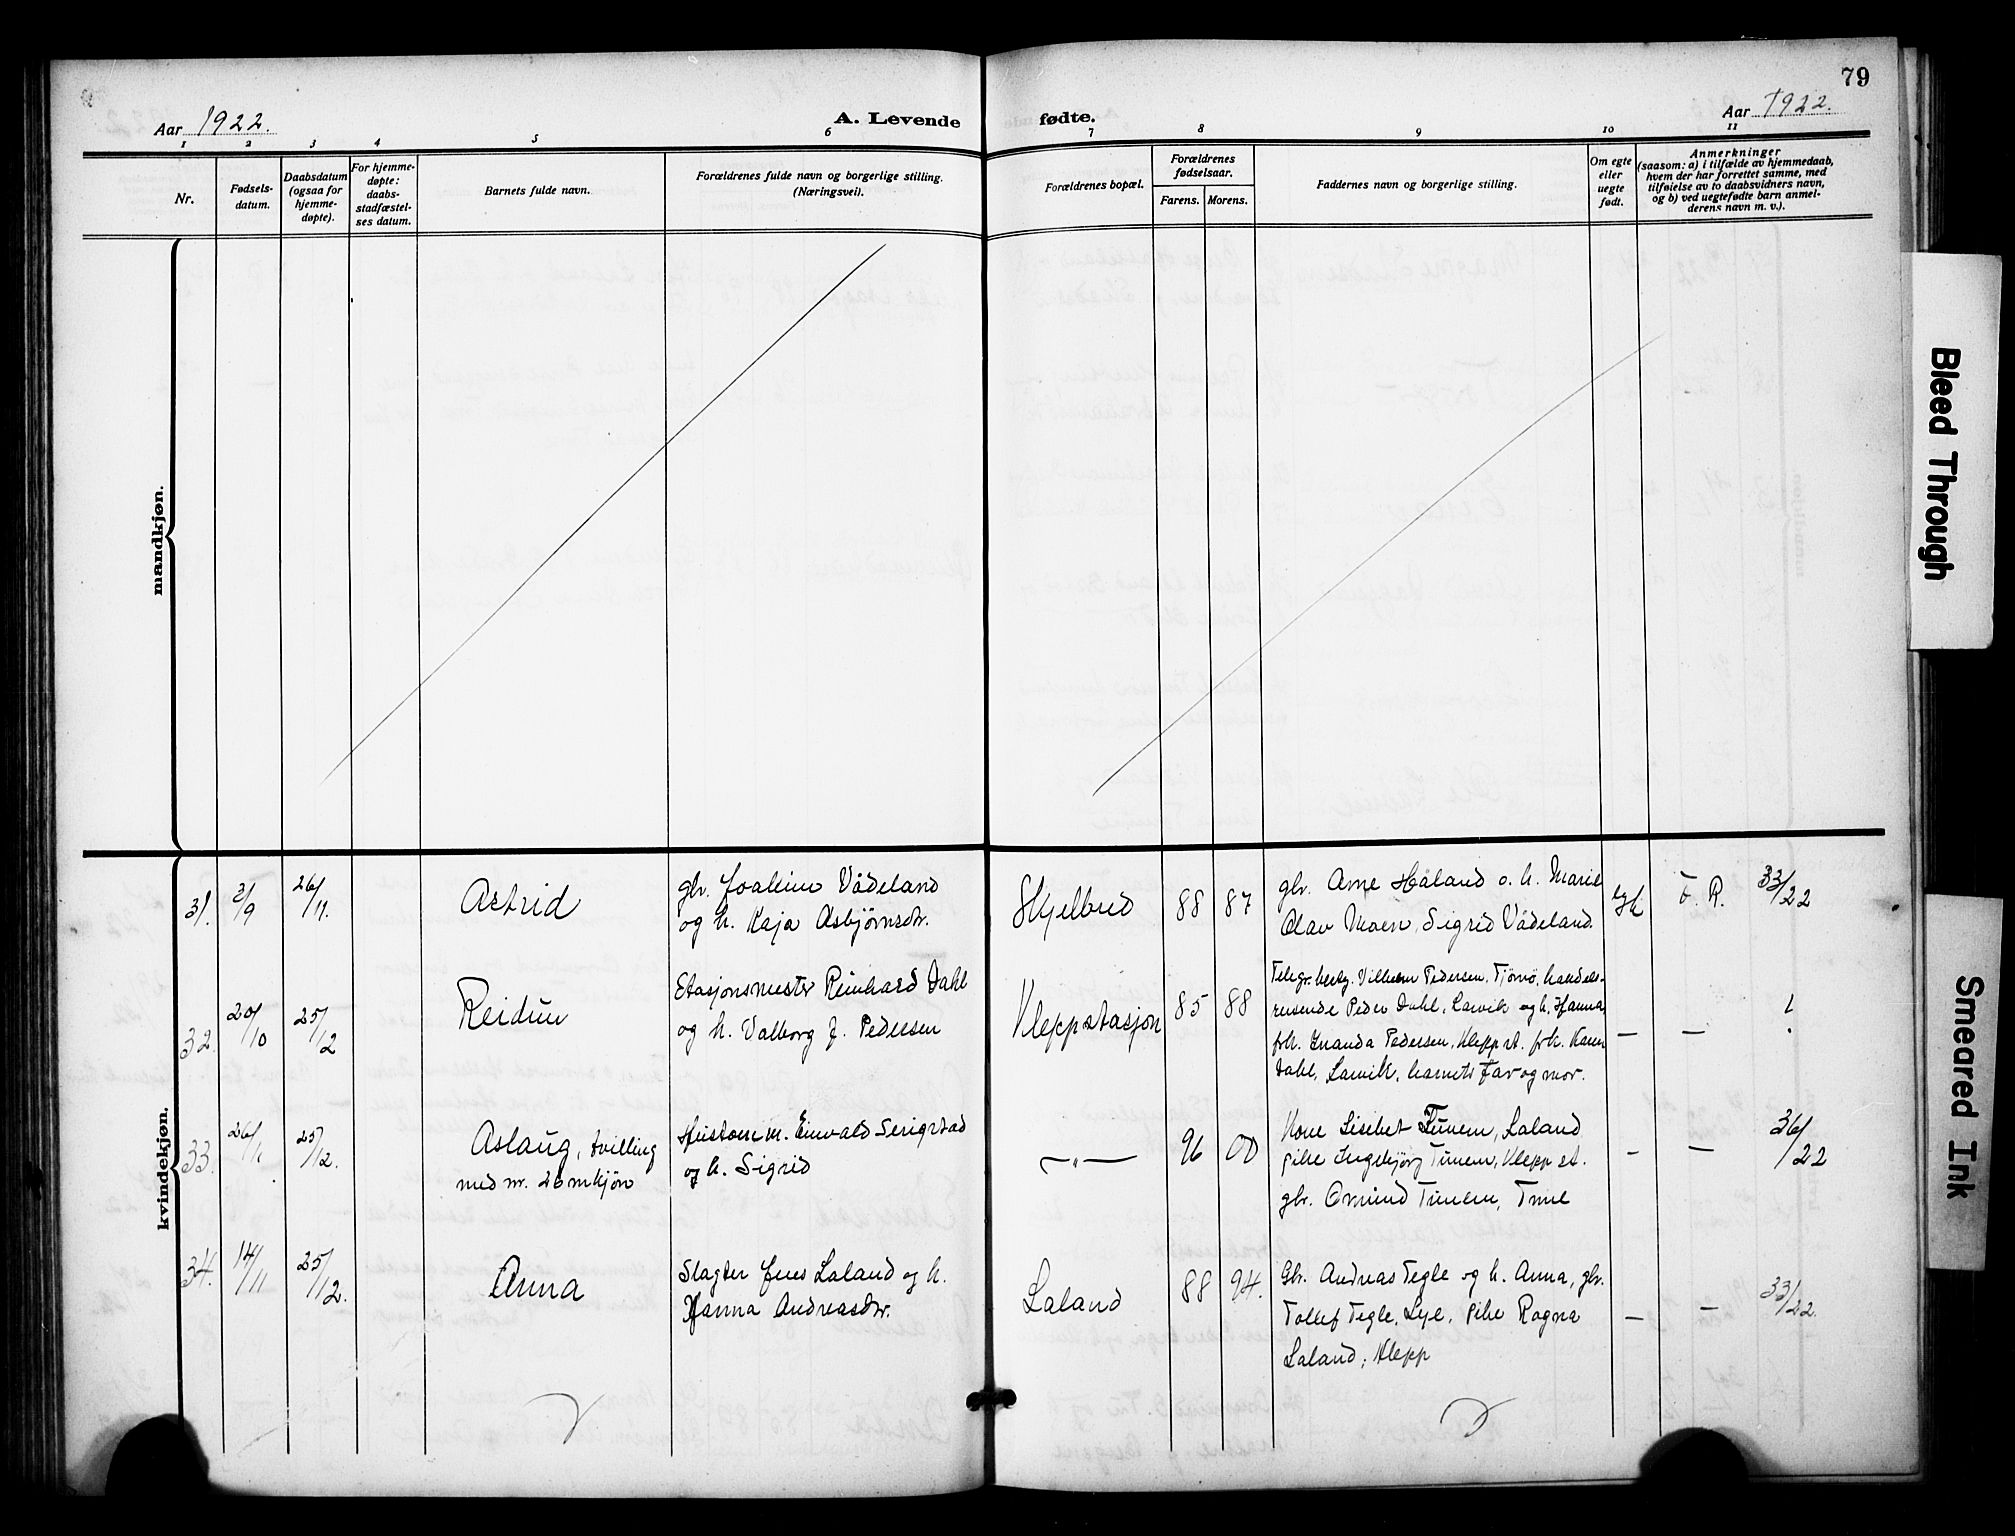 79
Aar 1922.
A. Levende fødte.
Aar 1922.
1 2 3 4 5 6 7 8 9 10 11
Nr.
Fødsels-
datum.
Daabsdatum
(ogsaa for
hjemme-
døpte).
For hjemme-
døpte:
daabs-
stadfæstel-
ses datum.
Barnets fulde navn.
Forældrenes fulde navn og borgerlige stilling.
(Næringsvei).
Forældrenes bopæl.
Forældrenes
fødselsaar.
Farens. Morens.
Faddernes navn og borgerlige stilling.
Om egte
eller
uegte
født.
Anmerkninger
(saasom: a) i tilfælde av hjemmedaab,
hvem der har forrettet samme, med
tilføielse av to daabsvidners navn,
og b) ved uegtefødte barn anmel-
derens navn m. v.).
mandkjøn.
kvindekjøn.
31. 3/9 26/11. Astrid
gbr. Joakim Vådeland
og h. Kaja Asbjørnsdtr.
Skjelbred 88 87
gbr. Arne Håland o. h. Marie
Olav Moen, Sigrid Vådeland.
F. R. 33/22
32. 20/10 25/12 Reidun
Stasjonsmester Reinhard Dahl
og h. Valborg f. Pedersen
Kleppstasjon 85 88
Telegr.besty. Vilhelm Pedersen, Tjömö, handels-
reisende Peder Dahl, Larvik og h. Hanna,
frk. Pedersen, Klepp st. frk. Karen
Dahl, Larvik, barnets far og mor.
— — !
33. 25/12. Aslaug, tvilling
med nr. 28 mkjön
m. Einvald Serigstad
og h. Sigrid
—"— 96 00
Kone Lisebet Tunem, Laland
pike Ingebjörg Tunem, Klepp st.
gbr. Omund Tunem, Time
— — 36/22
34. 14/11 25/12. Anna
Slagter Jens Laland og h.
Hanna Andreasdtr.
Laland 88 94.
Gbr. Andreas Tegle og h. Anna, gbr.
Tollef Tegle, Lye, pike Ragna
Laland, Klepp
— — 33/22.
Bleed Through
Smeared Ink